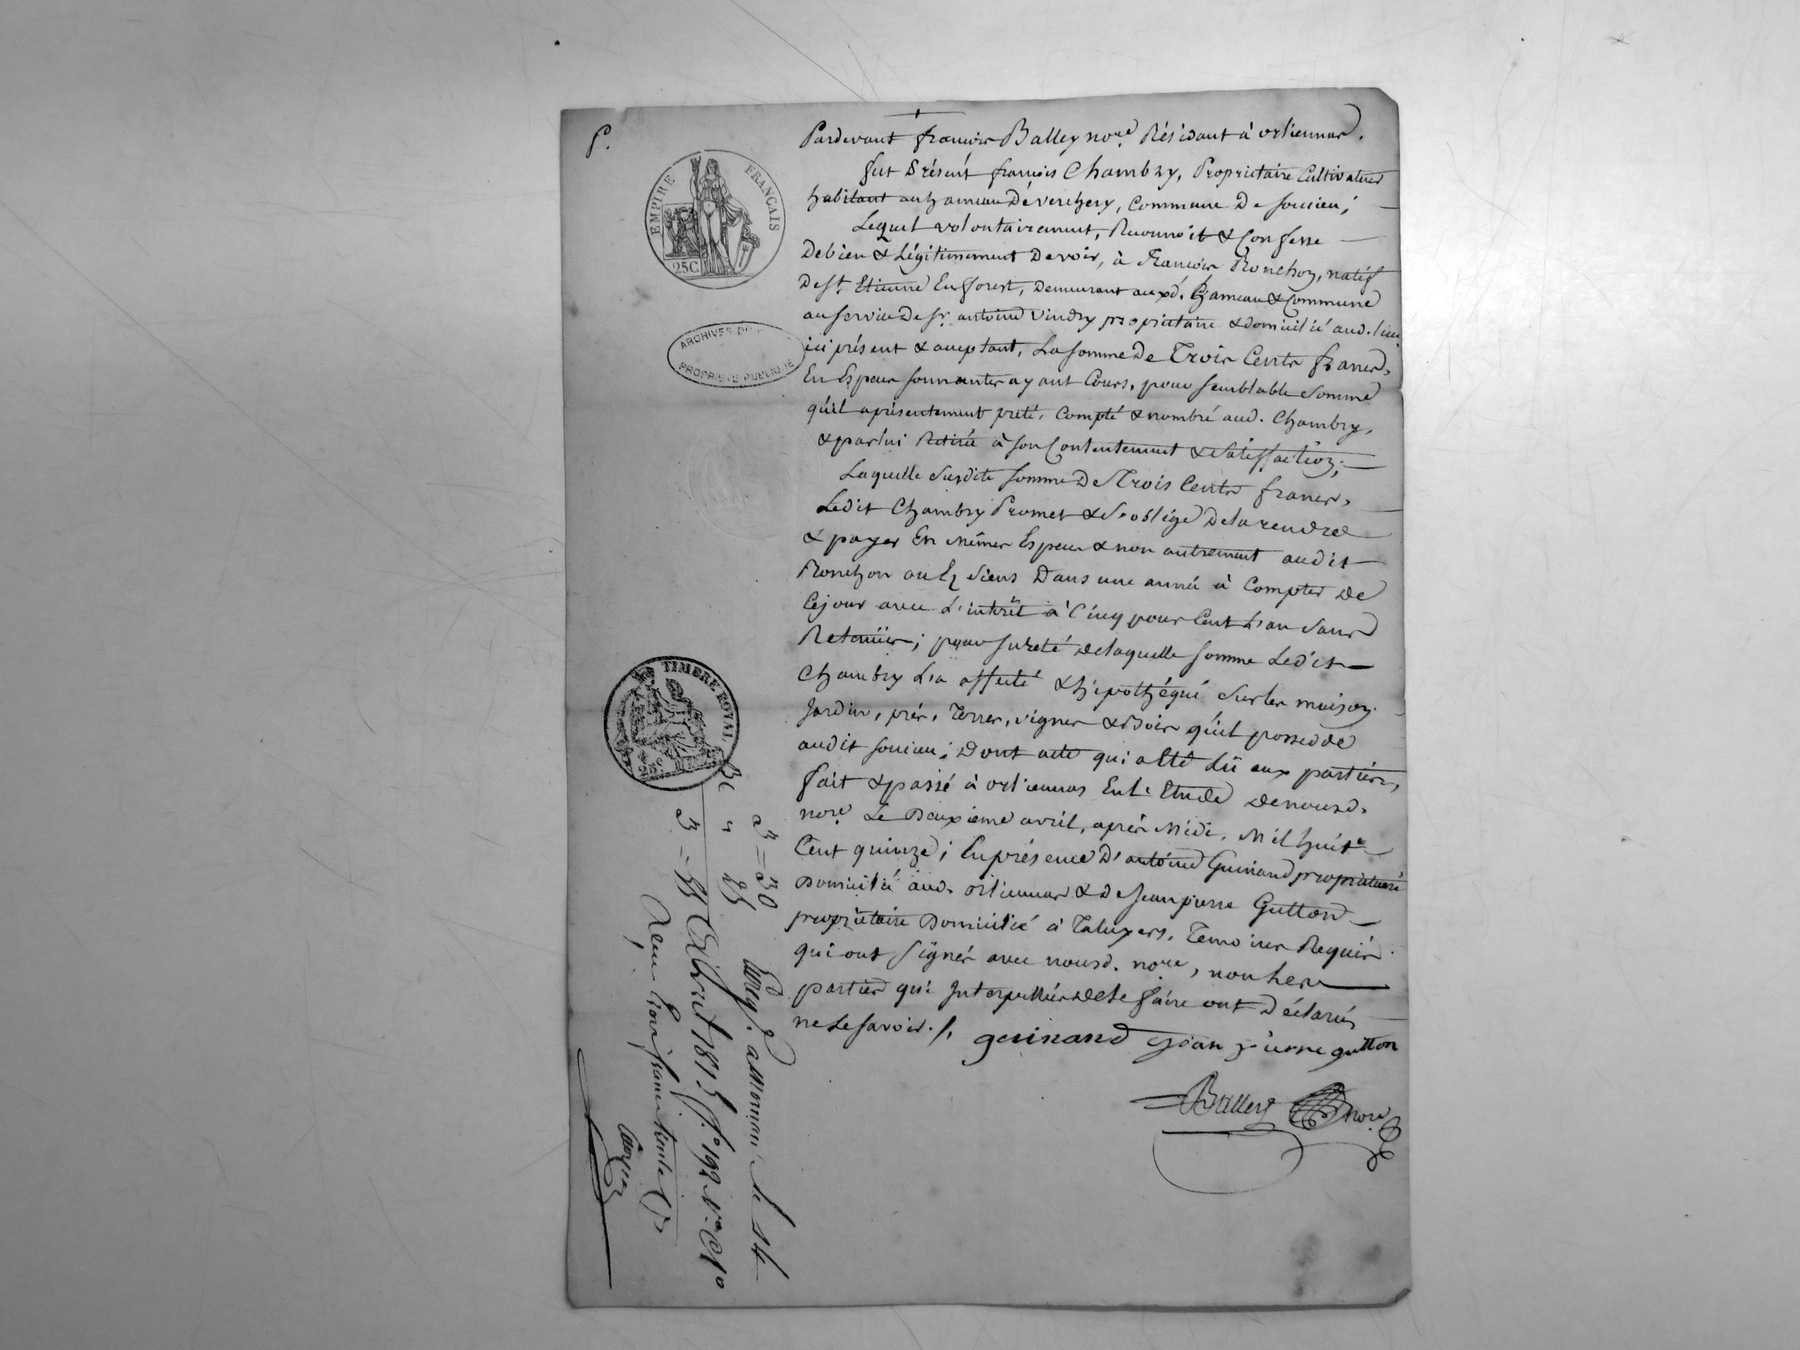 P.
EMPIRE FRANÇAIS
25C.
ARCHIVES DU
PROPRIÉTÉ PUBLIQUE
TIMBRE ROYAL
25c
Pardevant françois Balley nore. Résidant à orliennas.
fut Présent françois Chambry, Propriétaire Cultivateur
habitant au hameau de verchery, Commune De soucieu;
Lequel volontairement, Reconnoit & Confesse
De bien & Légitimement Devoir, à François Ronchon, natif
De St. Etienne En forest, Demeurant auxd. hameau & Commune
au service De Sr. antoine Vindry propriétaire & domicilié aud. lieu
ici présent & acceptant, La somme De Trois Cents francs,
En Espèces sonnantes ayant Cours, pour semblable somme
qu'il a présentement prêté, Compté & nombré aud. Chambry,
& par lui Retirée à son Contentement & satisfaction;
Laquelle susdite somme De Trois Cents francs,
Ledit Chambry Promet & S'oblige De la rendre
& payer En mêmes Espèces & non autrement audit
Ronchon ou Es siens Dans une année à Compter De
Ce jour avec L'intérêt à Cinq pour Cent L'an sans
Retenüe; pour sureté De laquelle somme Ledit
Chambry L'a affecté & hipothéqué sur les maison
Jardin, prés, Terres, vignes & Bois qu'il possedde
audit soucieu; Dont acte qui a été Lü aux parties,
fait & passé à orliennas En L'Etude De nousd.
nore. Le Deuxième avril, après Midi, Mil huit
Cent quinze; En présence D'antoine Guinand propriétaire
Domicilié aud. orliennas & De Jean pierre Gutton
propriétaire Domicilié à Taluyers, Temoins Requis
qui ont signés avec nousd. nore, non Les
parties qui Interpellées De le faire ont Déclarés
ne Le savoir./.
guinand jean pierre gutton
Balley nore
3 = 30
Enreg. a Mornant le 14
Avril 1815 fo. 192 Vo. C
Reçu trois francs trente c